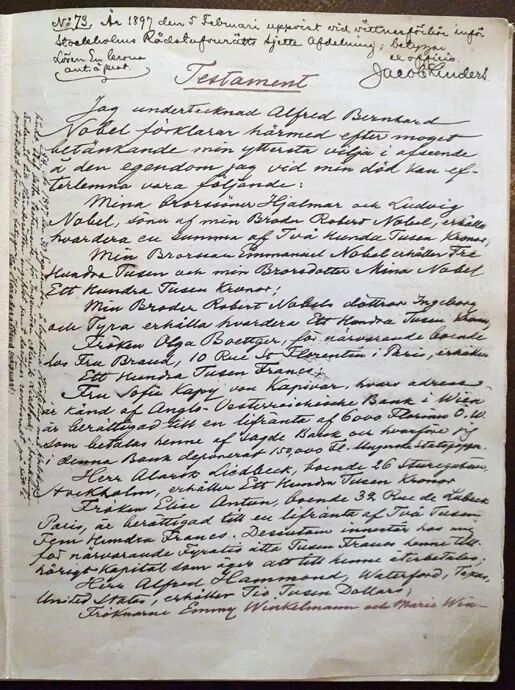 No 73. År 1897 den 5 Februari uppvist vid vittnesförhör inför
Stockholms Rådstufvurätts Sjette Afdelning; betygar
Lösen En krona
ex officio.
Jacob Lindert
Testament
Jag undertecknad Alfred Bernhard
Nobel förklarar härmed efter moget
betänkande min yttersta vilja i afseende
å den egendom jag vid min död kan ef-
terlemna vara följande:
Mina brorsöner Hjalmar och Ludvig
Nobel, söner af min Broder Robert Nobel, erhålla
hvardera en summa af Två Hundra Tusen Kronor;
Min Brorson Emmanuel Nobel erhåller Tre
Hundra Tusen och min Brorsdotter Mina Nobel
Ett Hundra Tusen Kronor;
Min Broder Robert Nobels döttrar Ingeborg
och Tyra erhålla hvardera Ett Hundra Tusen Kronor,
Fröken Olga Boettger, för närvarande boende
hos Fru Brand, 10 Rue St Florentin i Paris, erhåller
Ett Hundra Tusen Francs;
Fru Sofie Kapy von Kapivar, hvars adress
är känd af Anglo-Oesterreichische Bank i Wien
är berättigad till en lifränta af 6000 Florins Ö.W.
som betalas henne af sagde Bank och hvarföre jag
i denna Bank deponerat 150,000 Fl. i Ungerska statspapper.
Herr Alarik Liedbeck, boende 26 Sturegatan,
Stockholm, erhåller Ett Hundra Tusen Kronor
Fröken Elise Antun, boende 32 Rue de Lubeck
Paris, är berättigad till en lifränta af Två Tusen
Fem Hundra Francs. Dessutom innestår hos mig
för närvarande Fyratio åtta Tusen Francs henne till-
hörigt kapital som äger att till henne återbetalas;
Herr Alfred Hammond, Waterford, Texas,
United States, erhåller Tio Tusen Dollars;
Fröknarne Emmy Winkelmann och Marie Win-